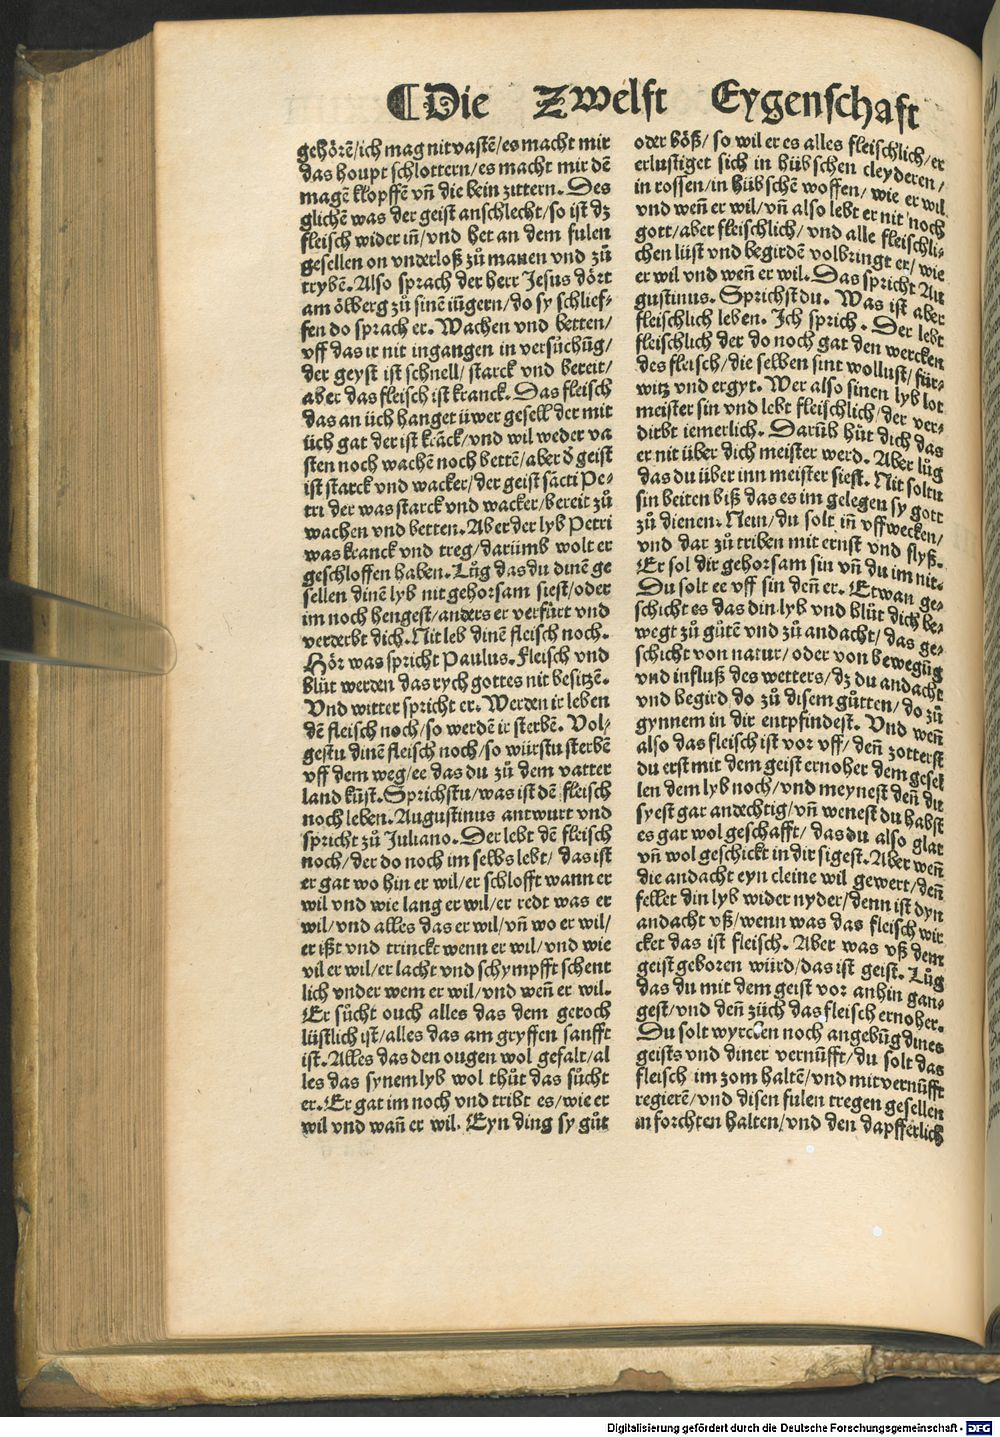 ¶Die Zwelft Eygenschaft
gehörē/ich mag nit vastē/es macht mir
das houpt schlottern/es macht mir dē
magē klopffē vn̄ die bein zittern. Des
glichē was der geist anschlecht/so ist dz
fleisch wider in̄/vnd het an dem fulen
gesellen on vnderloß zů manen vnd zů
trybē. Also sprach der herr Jesus dört
am ölberg zů sinē iūgern/do sy schlief-
fen do sprach er. Wachen vnd betten/
vff das ir nit ingangen in versůchūg/
der geyst ist schnell/starck vnd bereit/
aber das fleisch ist kranck. Das fleisch
das an üch hanget üwer gesell der mit
üch gat der ist krāck/vnd wil weder va
sten noch wachē noch bettē/aber d̄ geist
ist starck vnd wacker/der geist sācti Pe-
tri der was starck vnd wacker/bereit zů
wachen vnd betten. Aber der lyb Petri
was kranck vnd treg/darümb wolt er
geschloffen haben. Lůg das du dinē ge
sellen dinē lyb nit gehorsam siest/oder
im noch hengest/anders er verfürt vnd
verderbt dich. Nit leb dinē fleisch noch.
Hör was spricht Paulus. Fleisch vnd
blůt werden das rych gottes nit besitzē.
Vnd witter spricht er. Werden ir leben
dē fleisch noch/so werdē ir sterbē. Vol-
gestu dinē fleisch noch/so würstu sterbē
vff dem weg/ee das du zů dem vatter
land kūst. Sprichstu/was ist dē fleisch
noch leben. Augustinus antwurt vnd
spricht zů Juliano. Der lebt dē fleisch
noch/der do noch im selbs lebt/das ist
er gat wo hin er wil/er schlofft wann er
wil vnd wie lang er wil/er redt was er
wil/vnd alles das er wil/vn̄ wo er wil/
er ißt vnd trinckt wenn er wil/vnd wie
vil er wil/er lacht vnd schympfft schent
lich vnder wem er wil/vnd wen̄ er wil.
Er sůcht ouch alles das dem geroch
lüstlich ist/alles das am gryffen sanfft
ist. Alles das den ougen wol gefalt/al
les das synem lyb wol thůt das sůcht
er. Er gat im noch vnd tribt es/wie er
wil vnd wan̄ er wil. Eyn ding sy gůt
oder böß/so wil er es alles fleischlich/er
erlustiget sich in hübschen cleyderen/
in rossen/in hübschē woffen/wie er wil
vnd wen̄ er wil/vn̄ also lebt er nit noch
gott/aber fleischlich/vnd alle fleischli-
chen lüst vnd begirdē volbringt er/wie
er wil vnd wen̄ er wil. Das spricht Au
gustinus. Sprichst du. Was ist aber
fleischlich leben. Ich sprich. Der lebt
fleischlich der do noch gat den wercken
des fleisch/die selben sint wollust/für-
witz vnd ergyt. Wer also sinen lyb lot
meister sin vnd lebt fleischlich/der ver-
dirbt iemerlich. Darūb hüt dich das
er nit über dich meister werd. Aber lůg
das du über inn meister siest. Nit soltu
sin beiten biß das es im gelegen sy gott
zů dienen. Nein/du solt in̄ vffwecken/
vnd dar zů triben mit ernst vnd flyß.
Er sol dir gehorsam sin vn̄ du im nit.
Du solt ee vff sin den̄ er. Etwan ge-
schicht es das din lyb vnd blůt dich be-
wegt zů gůtē vnd zů andacht/das ge-
schicht von natur/oder von bewegūg
vnd influß des wetters/dz du andacht
vnd begird do zů disem gůtten/do zů
gynnem in dir entpfindest. Vnd wen̄
also das fleisch ist vor vff/den̄ zotterst
du erst mit dem geist ernoher dem gesel
len dem lyb noch/vnd meynest den̄ du
syest gar andechtig/vn̄ wenest du habst
es gar wol geschafft/das du also glat
vn̄ wol geschickt in dir sigest. Aber wen̄
die andacht eyn cleine wil gewert/den̄
fellet din lyb wider nyder/denn ist dyn
andacht vß/wenn was das fleisch wir
cket das ist fleisch. Aber was vß dem
geist geboren würd/das ist geist. Lůg
das du mit dem geist vor anhin gan-
gest/vnd den̄ züch das fleisch ernoher.
Du solt wyrcken noch angebūg dines
geists vnd diner vernūfft/du solt das
fleisch im zom haltē/vnd mit vernūfft
regierē/vnd disen fulen tregen gesellen
in forchten halten/vnd den dapfferlich
Digitalisierung gefördert durch die Deutsche Forschungsgemeinschaft - DFG